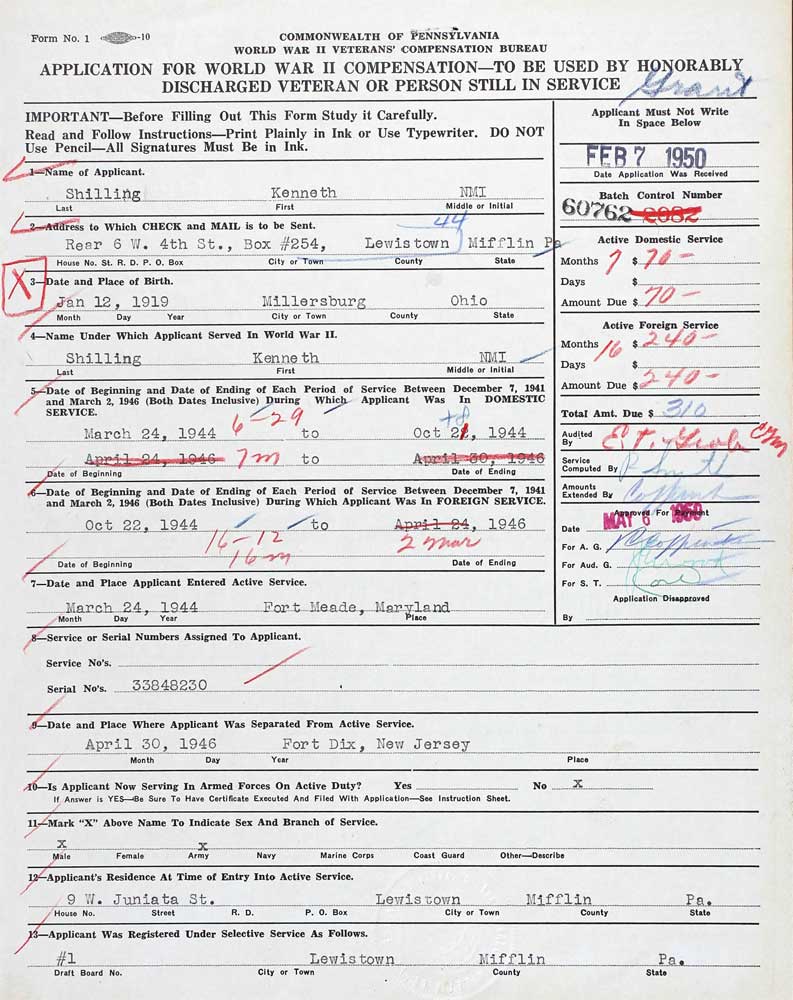 Form No. 1 -10
COMMONWEALTH OF PENNSYLVANIA
WORLD WAR II VETERANS' COMPENSATION BUREAU
APPLICATION FOR WORLD WAR II COMPENSATION—TO BE USED BY HONORABLY
DISCHARGED VETERAN OR PERSON STILL IN SERVICE
Grant
IMPORTANT—Before Filling Out This Form Study it Carefully.
Read and Follow Instructions—Print Plainly in Ink or Use Typewriter. DO NOT
Use Pencil—All Signatures Must Be in Ink.
1—Name of Applicant.
Shilling Kenneth NMI
Last First Middle or Initial
2—Address to Which CHECK and MAIL is to be Sent.
44
Rear 6 W. 4th St., Box #254, Lewistown Mifflin Pa
House No. St. R. D. P. O. Box City or Town County State
X
3—Date and Place of Birth.
Jan 12, 1919 Millersburg Ohio
Month Day Year City or Town County State
4—Name Under Which Applicant Served In World War II.
Shilling Kenneth NMI
Last First Middle or Initial
5—Date of Beginning and Date of Ending of Each Period of Service Between December 7, 1941
and March 2, 1946 (Both Dates Inclusive) During Which Applicant Was In DOMESTIC
SERVICE.
6-29
March 24, 1944 to Oct 21, 1944
April 24, 1946 7m to April 30, 1946
Date of Beginning Date of Ending
6—Date of Beginning and Date of Ending of Each Period of Service Between December 7, 1941
and March 2, 1946 (Both Dates Inclusive) During Which Applicant Was In FOREIGN SERVICE.
Oct 22, 1944 to April 24, 1946
16-12 2 mar
16m
Date of Beginning Date of Ending
7—Date and Place Applicant Entered Active Service.
March 24, 1944 Fort Meade, Maryland
Month Day Year Place
8—Service or Serial Numbers Assigned To Applicant.
Service No's.
Serial No's. 33848230
9—Date and Place Where Applicant Was Separated From Active Service.
April 30, 1946 Fort Dix, New Jersey
Month Day Year Place
10—Is Applicant Now Serving In Armed Forces On Active Duty? Yes No X
If Answer is YES—Be Sure To Have Certificate Executed And Filed With Application—See Instruction Sheet.
11—Mark "X" Above Name To Indicate Sex And Branch of Service.
X X
Male Female Army Navy Marine Corps Coast Guard Other—Describe
12—Applicant's Residence At Time of Entry Into Active Service.
9 W. Juniata St. Lewistown Mifflin Pa.
House No. Street R. D. P. O. Box City or Town County State
13—Applicant Was Registered Under Selective Service As Follows.
#1 Lewistown Mifflin Pa.
Draft Board No. City or Town County State
Applicant Must Not Write
In Space Below
FEB 7 1950
Date Application Was Received
Batch Control Number
60762 2082
Active Domestic Service
Months 7 $ 70-
Days $
Amount Due $ 70-
Active Foreign Service
Months 16 $ 240-
Days $
Amount Due $ 240-
Total Amt. Due $ 310
Audited
By
Service
Computed By
Amounts
Extended By
Approved For Payment
Date MAY 6 1950
For A. G.
For Aud. G.
For S. T.
Application Disapproved
By